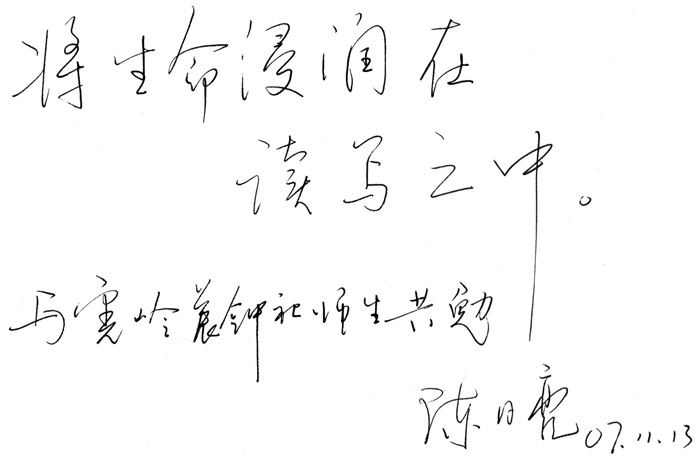 将生命浸润在
读写之中。
与宽岭晨钟社师生共勉
陈日亮 07.11.13